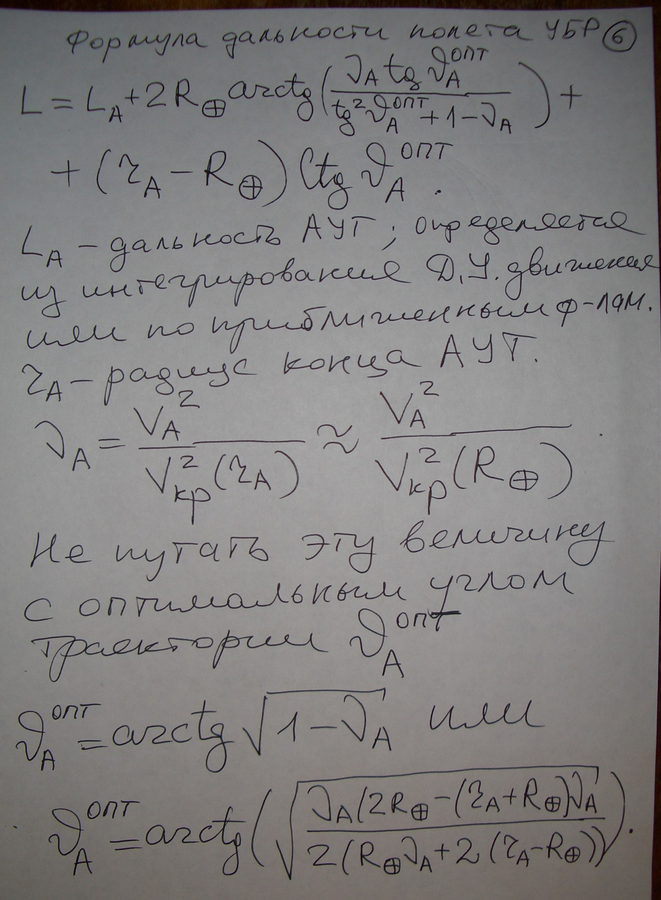 Формула дальности полета УБР ⑥
L = L_A + 2R_⊕ arctg( (ν_A tg ϑ_A^ОПТ) / (tg² ϑ_A^ОПТ + 1 − ν_A) ) +
+ (r_A − R_⊕) Ctg ϑ_A^ОПТ.
L_A – дальность АУТ; определяется
из интегрирования Д.У. движения
или по приближенным ф-лам.
r_A – радиус конца АУТ.
ν_A = V_A² / V_кр²(r_A) ≈ V_A² / V_кр²(R_⊕)
Не путать эту величину
с оптимальным углом
траектории ϑ_A^ОПТ
ϑ_A^ОПТ = arctg √(1 − ν_A) или
ϑ_A^ОПТ = arctg( √( ν_A(2R_⊕ − (r_A + R_⊕)ν_A / 2(R_⊕ν_A + 2(r_A − R_⊕)) ) ).